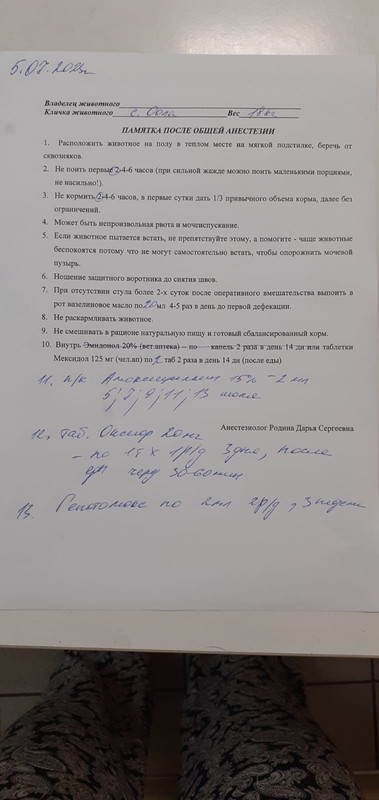 5.07.2023г
Владелец животного
Кличка животного с. Вес 18 кг
ПАМЯТКА ПОСЛЕ ОБЩЕЙ АНЕСТЕЗИИ
1. Расположить животное на полу в теплом месте на мягкой подстилке, беречь от
сквозняков.
2. Не поить первые 2-4-6 часов (при сильной жажде можно поить маленькими порциями,
не насильно!).
3. Не кормить 2-4-6 часов, в первые сутки дать 1/3 привычного объема корма, далее без
ограничений.
4. Может быть непроизвольная рвота и мочеиспускание.
5. Если животное пытается встать, не препятствуйте этому, а помогите - чаще животные
беспокоятся потому что не могут самостоятельно встать, чтобы опорожнить мочевой
пузырь.
6. Ношение защитного воротника до снятия швов.
7. При отсутствии стула более 2-х суток после оперативного вмешательства выпоить в
рот вазелиновое масло по 20 мл 4-5 раз в день до первой дефекации.
8. Не раскармливать животное.
9. Не смешивать в рационе натуральную пищу и готовый сбалансированный корм.
10. Внутрь Эмидонол 20% (вет.аптека) – по капель 2 раза в день 14 дн или таблетки
Мексидол 125 мг (чел.ап) по 2 таб 2 раза в день 14 дн (после еды)
11. п/к Амоксициллин 15% – 2 мл
5; 7; 9; 11; 13 июля
Анестезиолог Родина Дарья Сергеевна
12. таб. 20 мг
– по 1т х 1р/д 3 дня, после
еды через 30-60 мин
13. по 2 мл 2р/д, 3 недели